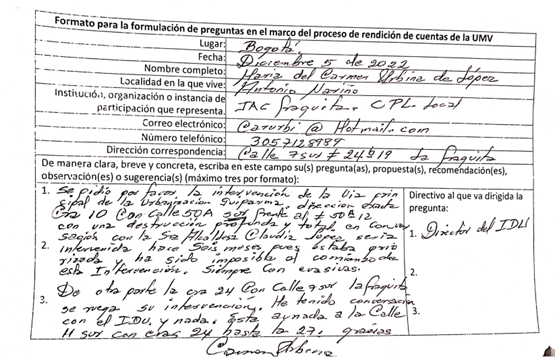 Formato para la formulación de preguntas en el marco del proceso de rendición de cuentas de la UMV
Lugar: Bogotá.
Fecha: Diciembre 5 de 2022
Nombre completo: Maria del Carmen Urbina de López
Localidad en la que vive: Antonio Nariño
Institución, organización o instancia de participación que representa. JAC fraguita. CPL. Local
Correo electrónico: Carurbi @ Hotmail.com
Número telefónico: 3057128989
Dirección correspondencia: Calle 7 sur # 24 19 la fraguita
De manera clara, breve y concreta, escriba en este campo su(s) pregunta(as), propuesta(s), recomendación(es),
observación(es) o sugerencia(s) (máximo tres por formato):
1. Se pidió por favor, la intervención de la Via prin
cipal de la Urbanización dirección exacta
Cra 10 Con Calle 50A sur frente al # 50A 12
con una destrucción profunda y total, en conver
sación con la Sra Alcaldesa Claudia López sería
2. intervenida hace Seis meses pues estaba prio
rizada y ha sido imposible el comienzo de
esta Intervención. Siempre con evasivas.
De otra parte la cra 24 Con Calle 7 sur la fraguita
3. se ruega su intervención. He tenido conversación
con el IDU, y nada. Esta aynada a la Calle
11 sur con cras 24 hasta la 27. gracias
Carmen Urbina
Directivo al que va dirigida la
pregunta:
1. Director del IDU
2.
3.